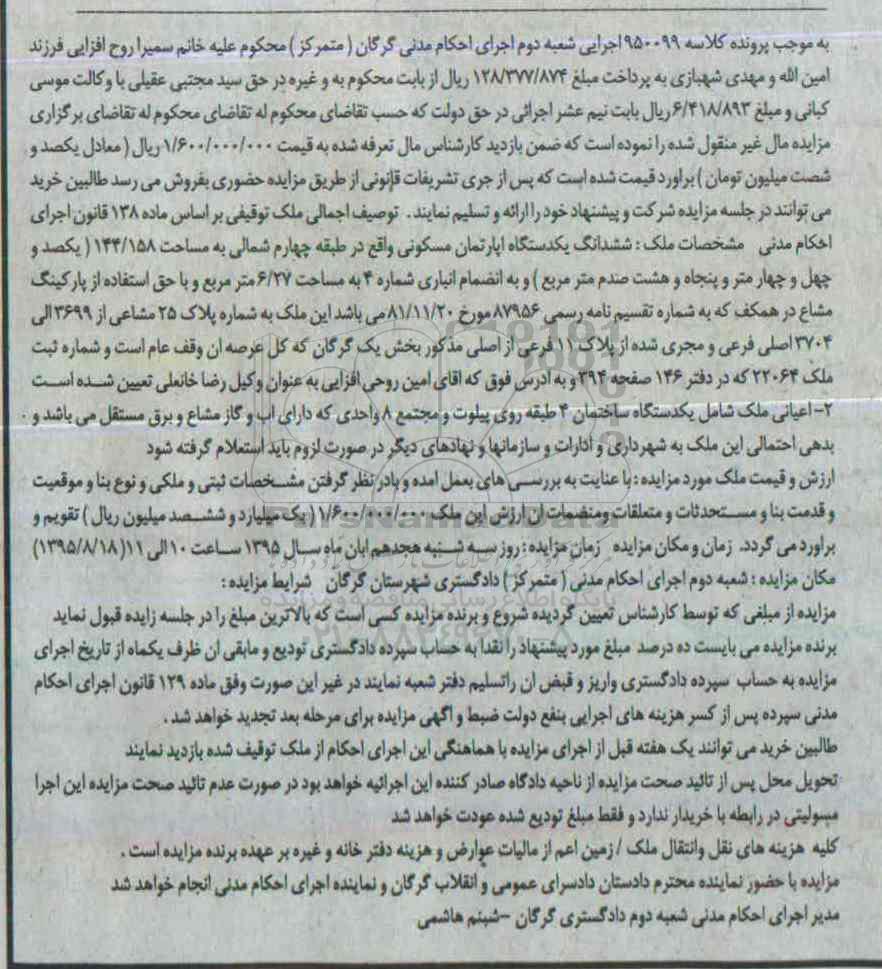 به موجب پرونده کلاسه ۹۵۰۰۹۹ اجرایی شعبه دوم اجرای احکام مدنی گرگان ( متمرکز ) محکوم علیه خانم سمیرا روح افزایی فرزند
امین الله و مهدی شهبازی به پرداخت مبلغ ۱۲۸/۳۷۷/۸۷۴ ریال از بابت محکوم به و غیره در حق سید مجتبی عقیلی با وکالت موسی
کیانی و مبلغ ۶/۴۱۸/۸۹۳ ریال بابت نیم عشر اجرائی در حق دولت که حسب تقاضای محکوم له تقاضای محکوم له تقاضای برگزاری
مزایده مال غیر منقول شده را نموده است که ضمن بازدید کارشناس مال تعرفه شده به قیمت ۱/۶۰۰/۰۰۰/۰۰۰ ریال ( معادل یکصد و
شصت میلیون تومان ) براورد قیمت شده است که پس از جری تشریفات قانونی از طریق مزایده حضوری بفروش می رسد طالبین خرید
می توانند در جلسه مزایده شرکت و پیشنهاد خود را ارائه و تسلیم نمایند . توصیف اجمالی ملک توقیفی بر اساس ماده ۱۳۸ قانون اجرای
احکام مدنی مشخصات ملک : ششدانگ یکدستگاه اپارتمان مسکونی واقع در طبقه چهارم شمالی به مساحت ۱۴۴/۱۵۸ ( یکصد و
چهل و چهار متر و پنجاه و هشت صدم متر مربع ) و به انضمام انباری شماره ۴ به مساحت ۶/۲۷ متر مربع و با حق استفاده از پارکینگ
مشاع در همکف که به شماره تقسیم نامه رسمی ۸۷۹۵۶ مورخ ۸۱/۱۱/۲۰ می باشد این ملک به شماره پلاک ۲۵ مشاعی از ۳۶۹۹ الی
۳۷۰۴ اصلی فرعی و مجری شده از پلاک ۱۱ فرعی از اصلی مذکور بخش یک گرگان که کل عرصه ان وقف عام است و شماره ثبت
ملک ۲۲۰۶۴ که در دفتر ۱۴۶ صفحه ۳۹۴ و به ادرس فوق که اقای امین روحی افزایی به عنوان وکیل رضا خانعلی تعیین شده است
۲- اعیانی ملک شامل یکدستگاه ساختمان ۴ طبقه روی پیلوت و مجتمع ۸ واحدی که دارای اب و گاز مشاع و برق مستقل می باشد و .
بدهی احتمالی این ملک به شهرداری و ادارات و سازمانها و نهادهای دیگر در صورت لزوم باید استعلام گرفته شود
ارزش و قیمت ملک مورد مزایده : با عنایت به بررسی های بعمل امده و بادر نظر گرفتن مشخصات ثبتی و ملکی و نوع بنا و موقعیت
و قدمت بنا و مستحدثات و متعلقات ومنضمات ان ارزش این ملک ۱/۶۰۰/۰۰۰/۰۰۰( یک میلیارد و ششصد میلیون ریال ) تقویم و
براورد می گردد. زمان و مکان مزایده زمان مزایده : روز سه شنبه هجدهم ابان ماه سال ۱۳۹۵ ساعت ۱۰ الی ۱۱ (۱۳۹۵/۸/۱۸)
مکان مزایده : شعبه دوم اجرای احکام مدنی ( متمرکز ) دادگستری شهرستان گرگان شرایط مزایده :
مزایده از مبلغی که توسط کارشناس تعیین گردیده شروع و برنده مزایده کسی است که بالاترین مبلغ را در جلسه زایده قبول نماید
برنده مزایده می بایست ده درصد مبلغ مورد پیشنهاد را نقدا به حساب سپرده دادگستری تودیع و مابقی ان ظرف یکماه از تاریخ اجرای
مزایده به حساب سپرده دادگستری واریز و قبض ان راتسلیم دفتر شعبه نمایند در غیر این صورت وفق ماده ۱۲۹ قانون اجرای احکام
مدنی سپرده پس از کسر هزینه های اجرایی بنفع دولت ضبط و اگهی مزایده برای مرحله بعد تجدید خواهد شد .
طالبین خرید می توانند یک هفته قبل از اجرای مزایده با هماهنگی این اجرای احکام از ملک توقیف شده بازدید نمایند
تحویل محل پس از تائید صحت مزایده از ناحیه دادگاه صادر کننده این اجرائیه خواهد بود در صورت عدم تائید صحت مزایده این اجرا
مسولیتی در رابطه با خریدار ندارد و فقط مبلغ تودیع شده عودت خواهد شد
کلیه هزینه های نقل وانتقال ملک / زمین اعم از مالیات عوارض و هزینه دفتر خانه و غیره بر عهده برنده مزایده است .
مزایده با حضور نماینده محترم دادستان دادسرای عمومی و انقلاب گرگان و نماینده اجرای احکام مدنی انجام خواهد شد
مدیر اجرای احکام مدنی شعبه دوم دادگستری گرگان -شبنم هاشمی